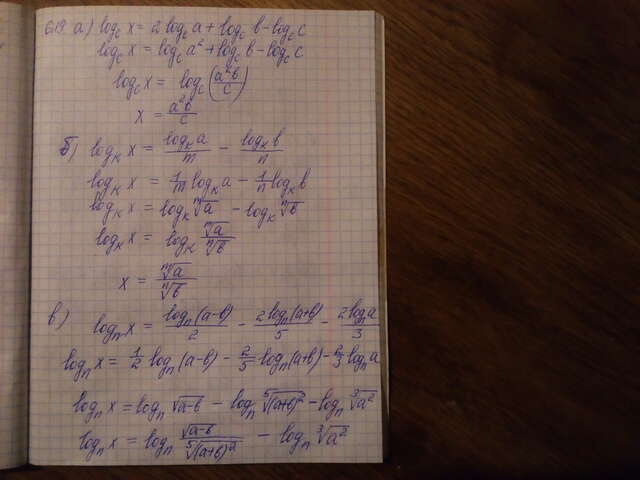 619. а) log_c x = 2 log_c a + log_c b - log_c c
log_c x = log_c a² + log_c b - log_c c
log_c x = log_c (a²b/c)
x = a²b/c
б) log_k x = log_k a/m - log_k b/n
log_k x = 1/m log_k a - 1/n log_k b
log_k x = log_k ᵐ√a - log_k ⁿ√b
log_k x = log_k ᵐ√a/ⁿ√b
x = ᵐ√a/ⁿ√b
в) log_n x = log_n (a-b)/2 - 2 log_n (a+b)/5 - 2 log_n a/3
log_n x = 1/2 log_n (a-b) - 2/5 log_n (a+b) - 2/3 log_n a
log_n x = log_n √a-b - log_n ⁵√(a+b)² - log_n ³√a²
log_n x = log_n √a-b/⁵√(a+b)² - log_n ³√a²